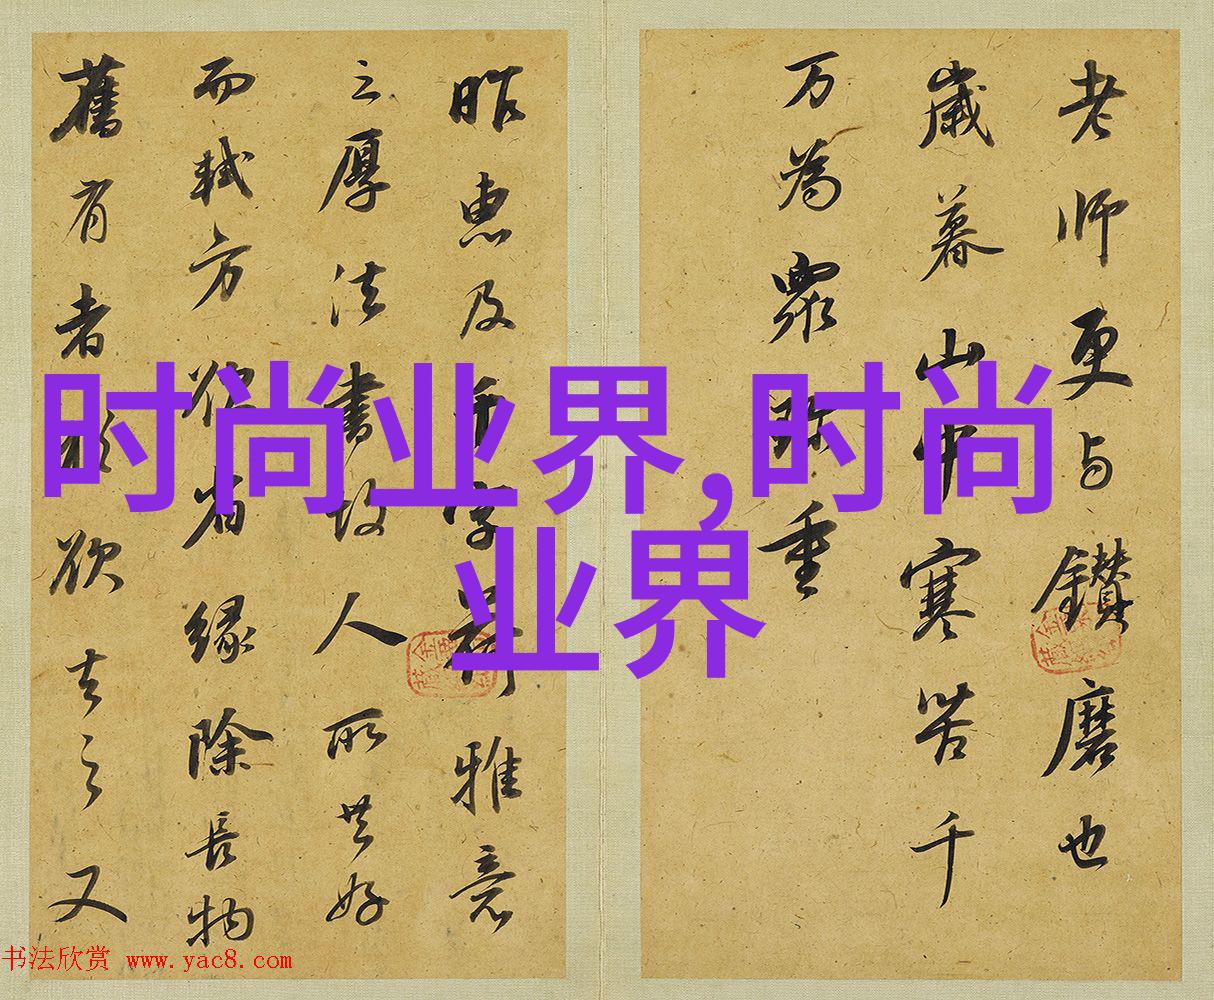 时尚业界,时尚
业界
老师更与鑽磨也
歲暮山中寒苦千
万為眾珎重
昨惠及千字荷雅意
之厚法書人所共好
而軾方欲省緣除長物
舊有者欲去之又
书法欣赏 www.yac8.com